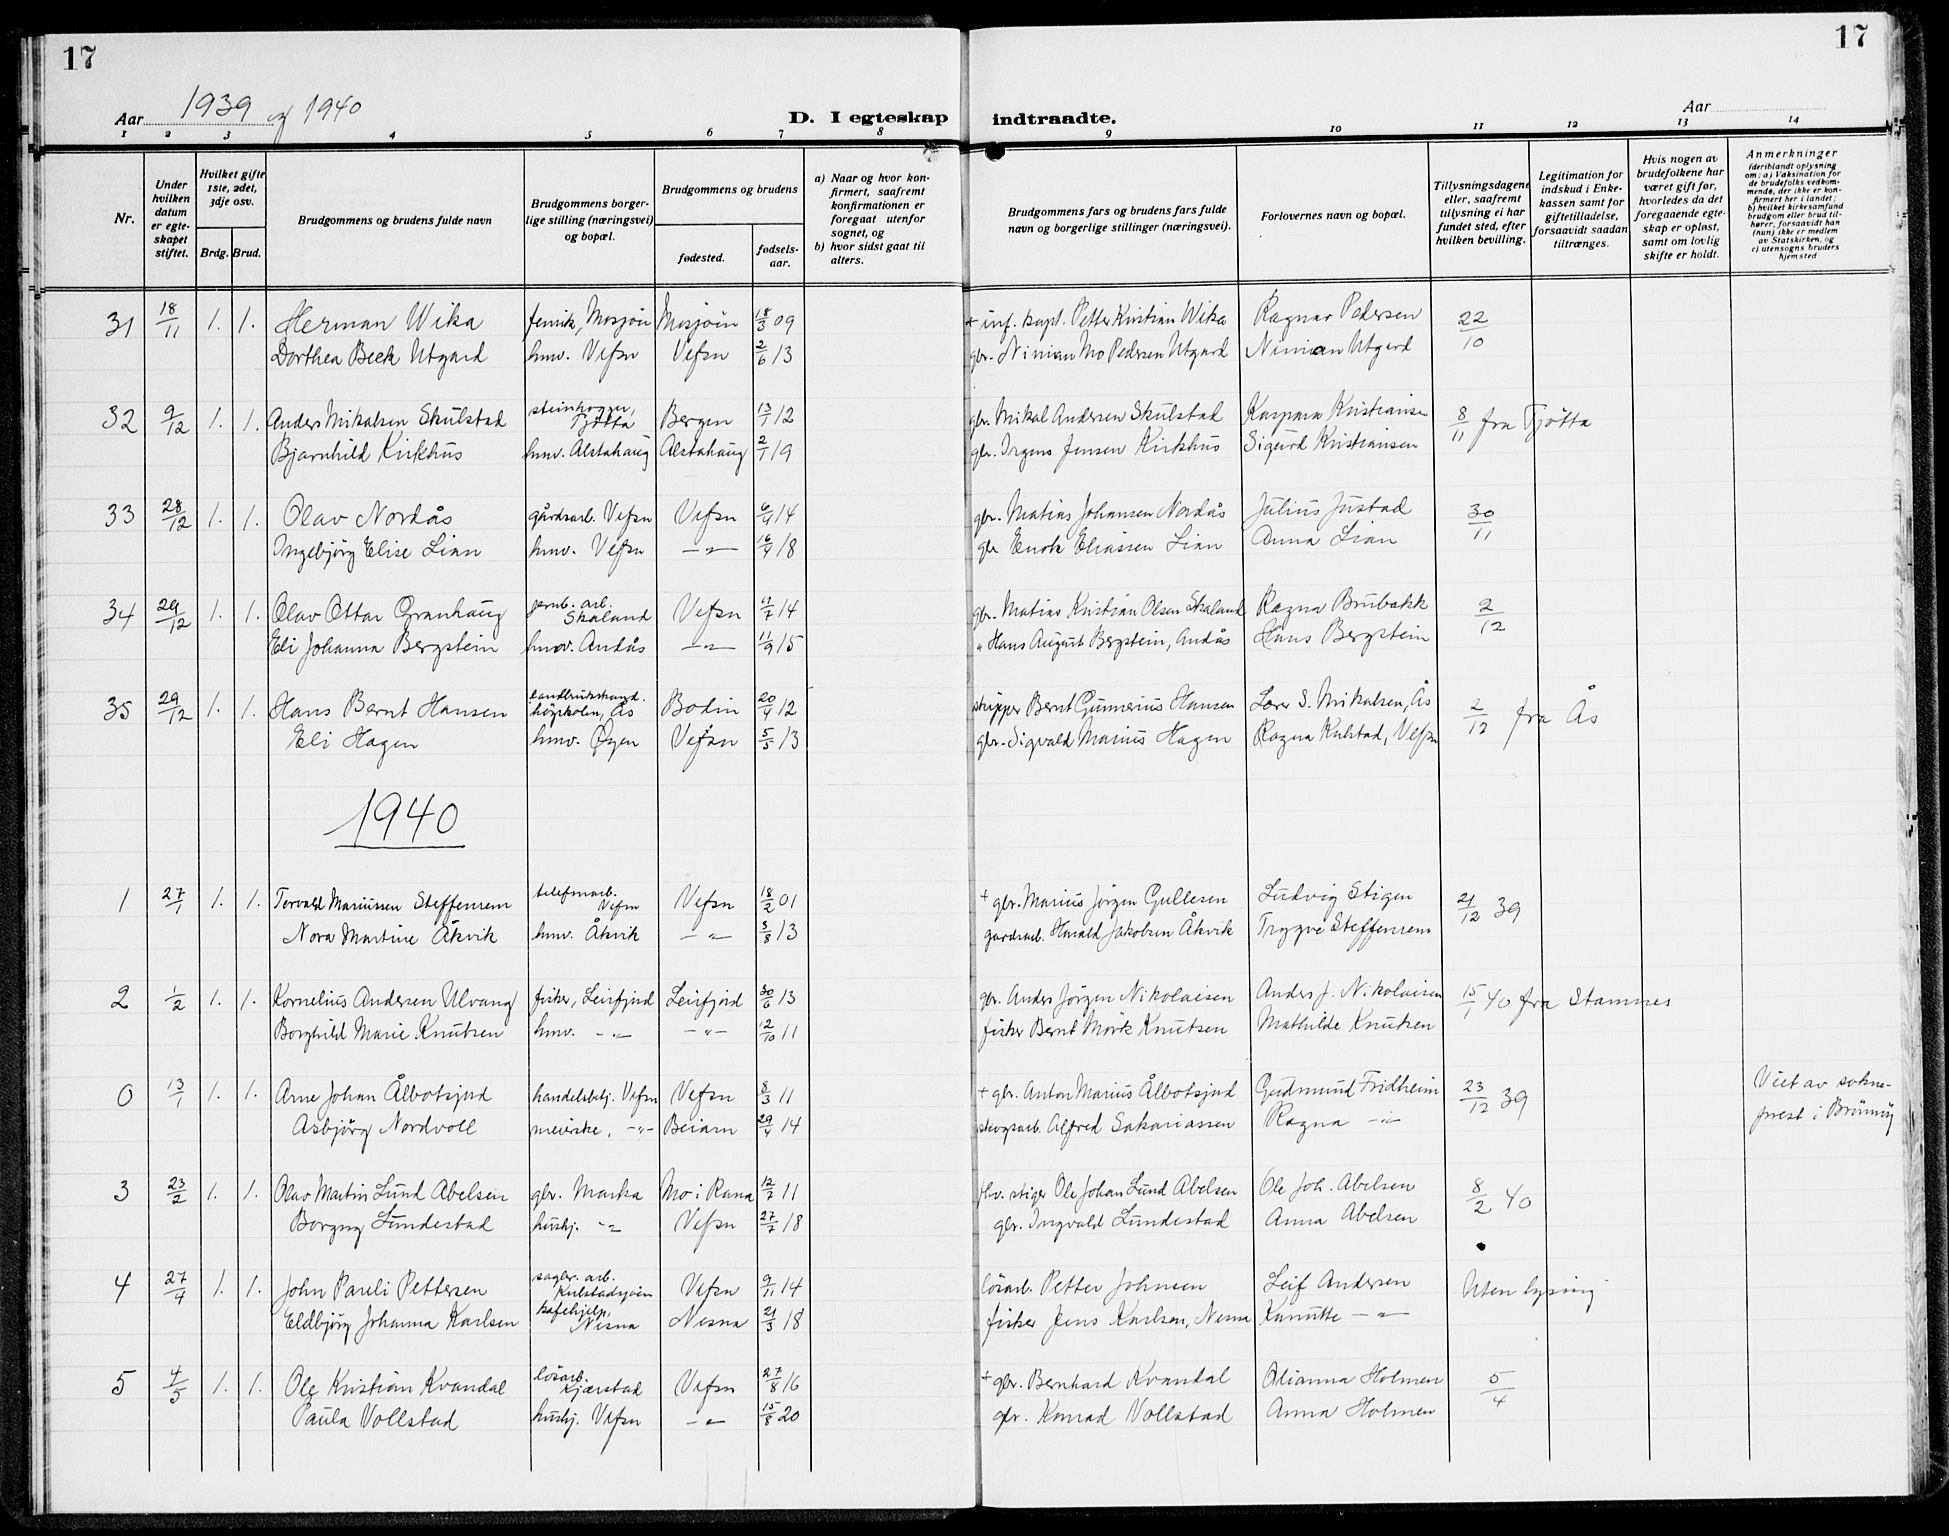 17
17
Aar 1939 og 1940
D. I egteskap indtraadte.
Aar
1 2 3 4 5 6 7 8 9 10 11 12 13 14
Nr.
Under hvilken datum er egteskapet stiftet.
Hvilket gifte 1ste, 2det, 3dje osv.
Brdg. Brud.
Brudgommens og brudens fulde navn
Brudgommens borgerlige stilling (næringsvei) og bopæl.
Brudgommens og brudens
fødested.
fødselsaar.
a) Naar og hvor konfirmert, saafremt konfirmationen er foregaat utenfor sognet, og
b) hvor sidst gaat til alters.
Brudgommens fars og brudens fars fulde navn og borgerlige stillinger (næringsvei).
Forlovernes navn og bopæl.
Tillysningsdagene eller, saafremt tillysning ei har fundet sted, efter hvilken bevilling.
Legitimation for indskud i Enkekassen samt for giftetilladelse, forsaavidt saadan tiltrænges.
Hvis nogen av brudefolkene har været gift før, hvorledes da det foregaaende egteskap er opløst, samt om lovlig skifte er holdt.
Anmerkninger (deriblandt oplysning om: a) Vaksination for de brudefolks vedkommende, der ikke er konfirmert her i landet; b) hvilket kirkesamfund brudgom eller brud tilhører, forsaavidt han (hun) ikke er medlem av Statskirken, og c) utensogns bruders hjemsted
31 18/11 1. 1. Herman Wika fenrik, Mosjöen Mosjöen 18/3 09 + inf. kapt. Petter Kristian Wika Ragnar Pedersen 22/10
Dorthea Beck Utgard hmv. Vefsn Vefsn 2/6 13 gbr. Ninian Mo Pedersen Utgard Ninian Utgard
32 9/12 1. 1. Anders Mikalsen Skulstad steinhogger, Tjötta Bergen 13/7 12 gbr. Mikal Andersen Skulstad Kaspara Kristiansen 8/11 fra Tjötta
Bjarnhild Kirkhus hmv. Alstahaug Alstahaug 2/7 19 gbr. Irgens Jensen Kirkhus Sigurd Kristiansen
33 28/12 1. 1. Olav Nordås gårdsarb. Vefsn Vefsn 6/4 14 gbr. Matias Johansen Nordås Julius Justad 30/11
Ingebjörg Elise Lian hmv. Vefsn —"— 16/4 18 gbr Enok Eliassen Lian Anna Lian
34 29/12 1. 1. Olav Ottar Granhaug jernb. arb. Skaland Vefsn 4/7 14 gbr. Matias Kristian Olsen Skaland Ragna Brubakk 2/12
Eli Johanna Bergstein hmv. Andås —"— 11/9 15 " Hans August Bergstein, Andås Hans Bergstein
35 29/12 1. 1. Hans Bernt Hansen landbrukskand. högskolen, Ås Bodin 20/4 12 skipper Bernt Gunnerius Hansen Lærer S. Mikalsen, Ås 2/12 fra Ås
Eli Hagen hmv. Öyen Vefsn 5/5 13 gbr. Sigvald Marius Hagen Ragna Kulstad, Vefsn
1940
1 27/1 1. 1. Torvald Mariussen Steffensen telefonarb. Vefsn Vefsn 18/2 01 + gbr. Marius Jörgen Gullesen Ludvig Stigen 21/12 39
Nora Martine Åkvik hmv. Åkvik —"— 3/8 13 gardsarb. Harald Jakobsen Åkvik Trygve Steffensen
2 1/2 1. 1. Kornelius Andersen Ulvang fisker, Leirfjord Leirfjord 30/6 13 gbr. Anders Jörgen Nikolaisen Anders J. Nikolaisen 15/1 40 fra Stamnes
Borghild Marie Knutsen hmv. —"— —"— 12/10 11 fisker Bernt Mörk Knutsen Mathilde Knutsen
0 13/1 1. 1. Arne Johan Ålbotsjord handelsbetj. Vefsn Vefsn 8/3 11 + gbr. Anton Marius Ålbotsjord Gudmund Fridheim 23/12 39 Viet av sokne-
Asbjörg Nordvoll meierske, —"— Beiarn 29/4 14 skogsarb. Alfred Sakariassen Ragna —"— prest i Brönnöy
3 23/2 1. 1. Olav Martin Lund Abelsen gbr. Marka Mo i Rana 12/2 11 fhv. stiger Ole Johan Lund Abelsen Ole Joh. Abelsen 8/2 40
Borgny Lundestad hushj. —"— Vefsn 27/7 18 gbr. Ingvald Lundestad Anna Abelsen
4 27/4 1. 1. John Pareli Pettersen sagbr. arb. Kulstadsjöen Vefsn 9/11 14 lösarb. Petter Johnsen Leif Andersen Uten lysing
Eldbjörg Johanna Karlsen kafehjelp, Nesna Nesna 21/3 18 fisker Jens Karlsen, Nesna Kanutte —"—
5 4/5 1. 1. Ole Kristian Kvandal lösarb. Kjærstad Vefsn 27/8 16 + gbr. Bernhard Kvandal Olianna Holmen 5/4
Paula Vollstad hushj. Vefsn —"— 15/8 20 gbr. Konrad Vollstad Anna Holmen